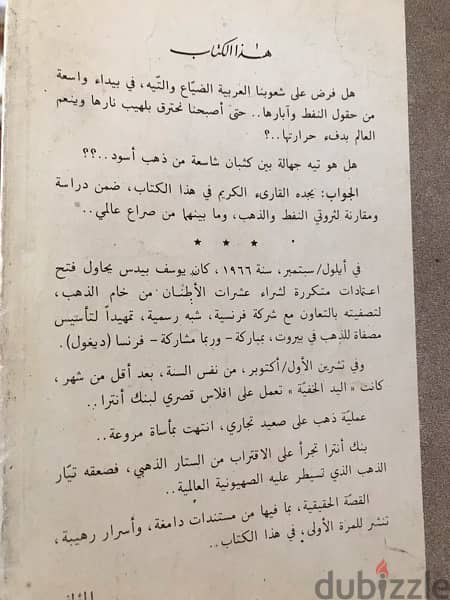 هذا الكتاب
هل فرض على شعوبنا العربية الضيّاع والتّيه، في بيداء واسعة
من حقول النفط وآبارها.. حتى أصبحنا نحترق بلهيب نارها وينعم
العالم بدفء حرارتها..؟
هل هو تيه جهالة بين كثبان شاسعة من ذهب أسود..؟؟
الجواب: يجده القارىء الكريم في هذا الكتاب، ضمن دراسة
ومقارنة لثروتي النفط والذهب، وما بينهما من صراع عالمي..
* * *
في أيلول/سبتمبر، سنة ١٩٦٦، كان يوسف بيدس يحاول فتح
اعتمادات متكررة لشراء عشرات الأطنان من خام الذهب،
لتصفيته بالتعاون مع شركة فرنسية، شبه رسمية، تمهيداً لتأسيس
مصفاة للذهب في بيروت، بمباركة - وربما مشاركة - فرنسا (ديغول).
وفي تشرين الأول/أكتوبر، من نفس السنة، بعد أقل من شهر،
كانت «اليد الخفيّة» تعمل على افلاس قصري لبنك أنترا..
عمليّة ذهب على صعيد تجاري، انتهت بمأساة مروعة..
بنك أنترا تجرأ على الاقتراب من الستار الذهبي، فصعقه تيّار
الذهب الذي تسيطر عليه الصهيونية العالمية..
القصّة الحقيقية، بما فيها من مستندات دامغة، وأسرار رهيبة،
تنشر للمرة الأولى، في هذا الكتاب..
dubizzle